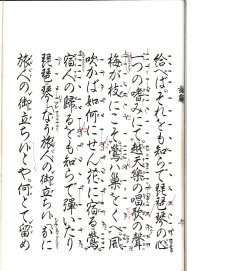 給へばそれとも知らで琵琶琴の心
一つの嗜みにて越天樂の唱歌の聲
梅が枝にこそ鶯は巣をくへ風
吹かば如何にせん花に宿る鶯
宿人の歸るも知らで彈いたり
琵琶琴なう旅人の御立ち
旅人の御立ちとや何とて留め